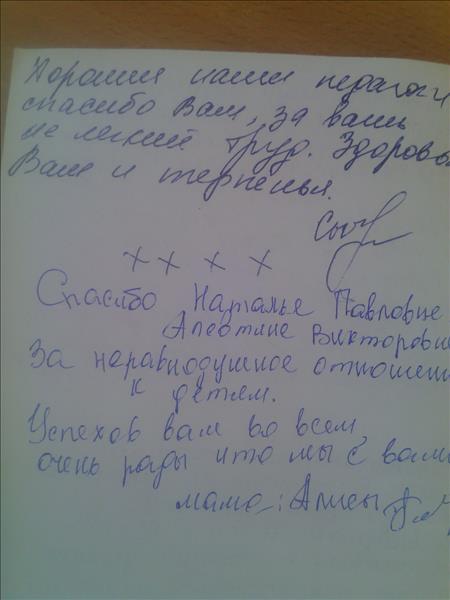 Хорошии наши педагоги
спасибо Вам, за вашь
не легкий труд. Здоровья
Вам и терпенья.
Спасибо Наталье Павловне
Алевтине Викторовне
За неравнодушное отношени
к детям.
Успехов вам во всем,
очень рады что мы с вами
мама: Алисы